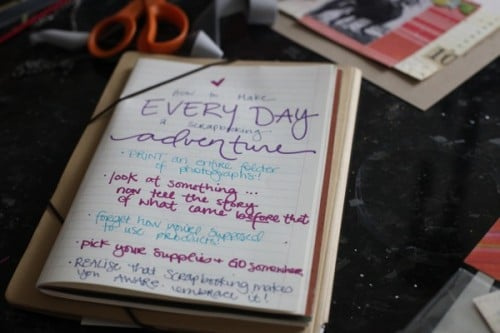 HOW to Make
EVERY DAY
a scrapbooking
adventure
· PRINT an entire folder
of photographs!
· look at something ...
now tell the story
of what came before that
· forget how you're supposed
to use products!
· pick your supplies + GO somewhere
· REALISE that scrapbooking makes
you AWARE. embrace it!